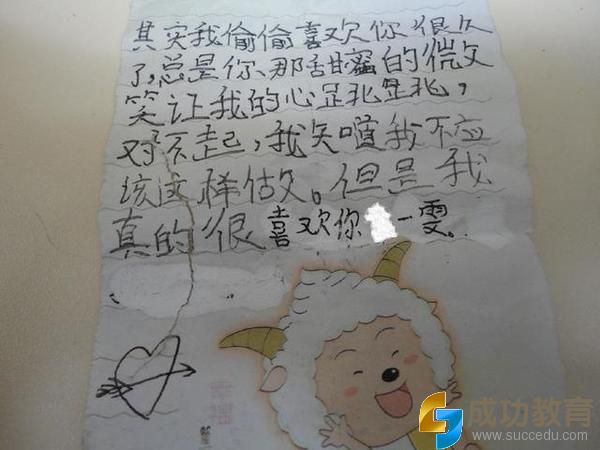 其实我偷偷喜欢你很久
了,总是你、那甜蜜的微
笑让我的心是兆是兆,
对不起,我知道我不应
该这样做。但是我
真的很喜欢你一雯。
成功教育
www.succedu.com